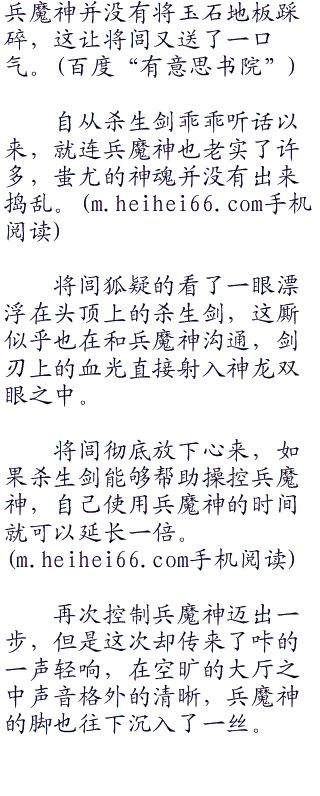 兵魔神并没有将玉石地板踩
碎，这让将闾又送了一口
气。(百度“有意思书院”)
自从杀生剑乖乖听话以
来，就连兵魔神也老实了许
多，蚩尤的神魂并没有出来
捣乱。(m.heihei66.com手机
阅读)
将闾狐疑的看了一眼漂
浮在头顶上的杀生剑，这厮
似乎也在和兵魔神沟通，剑
刃上的血光直接射入神龙双
眼之中。
将闾彻底放下心来，如
果杀生剑能够帮助操控兵魔
神，自己使用兵魔神的时间
就可以延长一倍。
(m.heihei66.com手机阅读)
再次控制兵魔神迈出一
步，但是这次却传来了咔的
一声轻响，在空旷的大厅之
中声音格外的清晰，兵魔神
的脚也往下沉入了一丝。